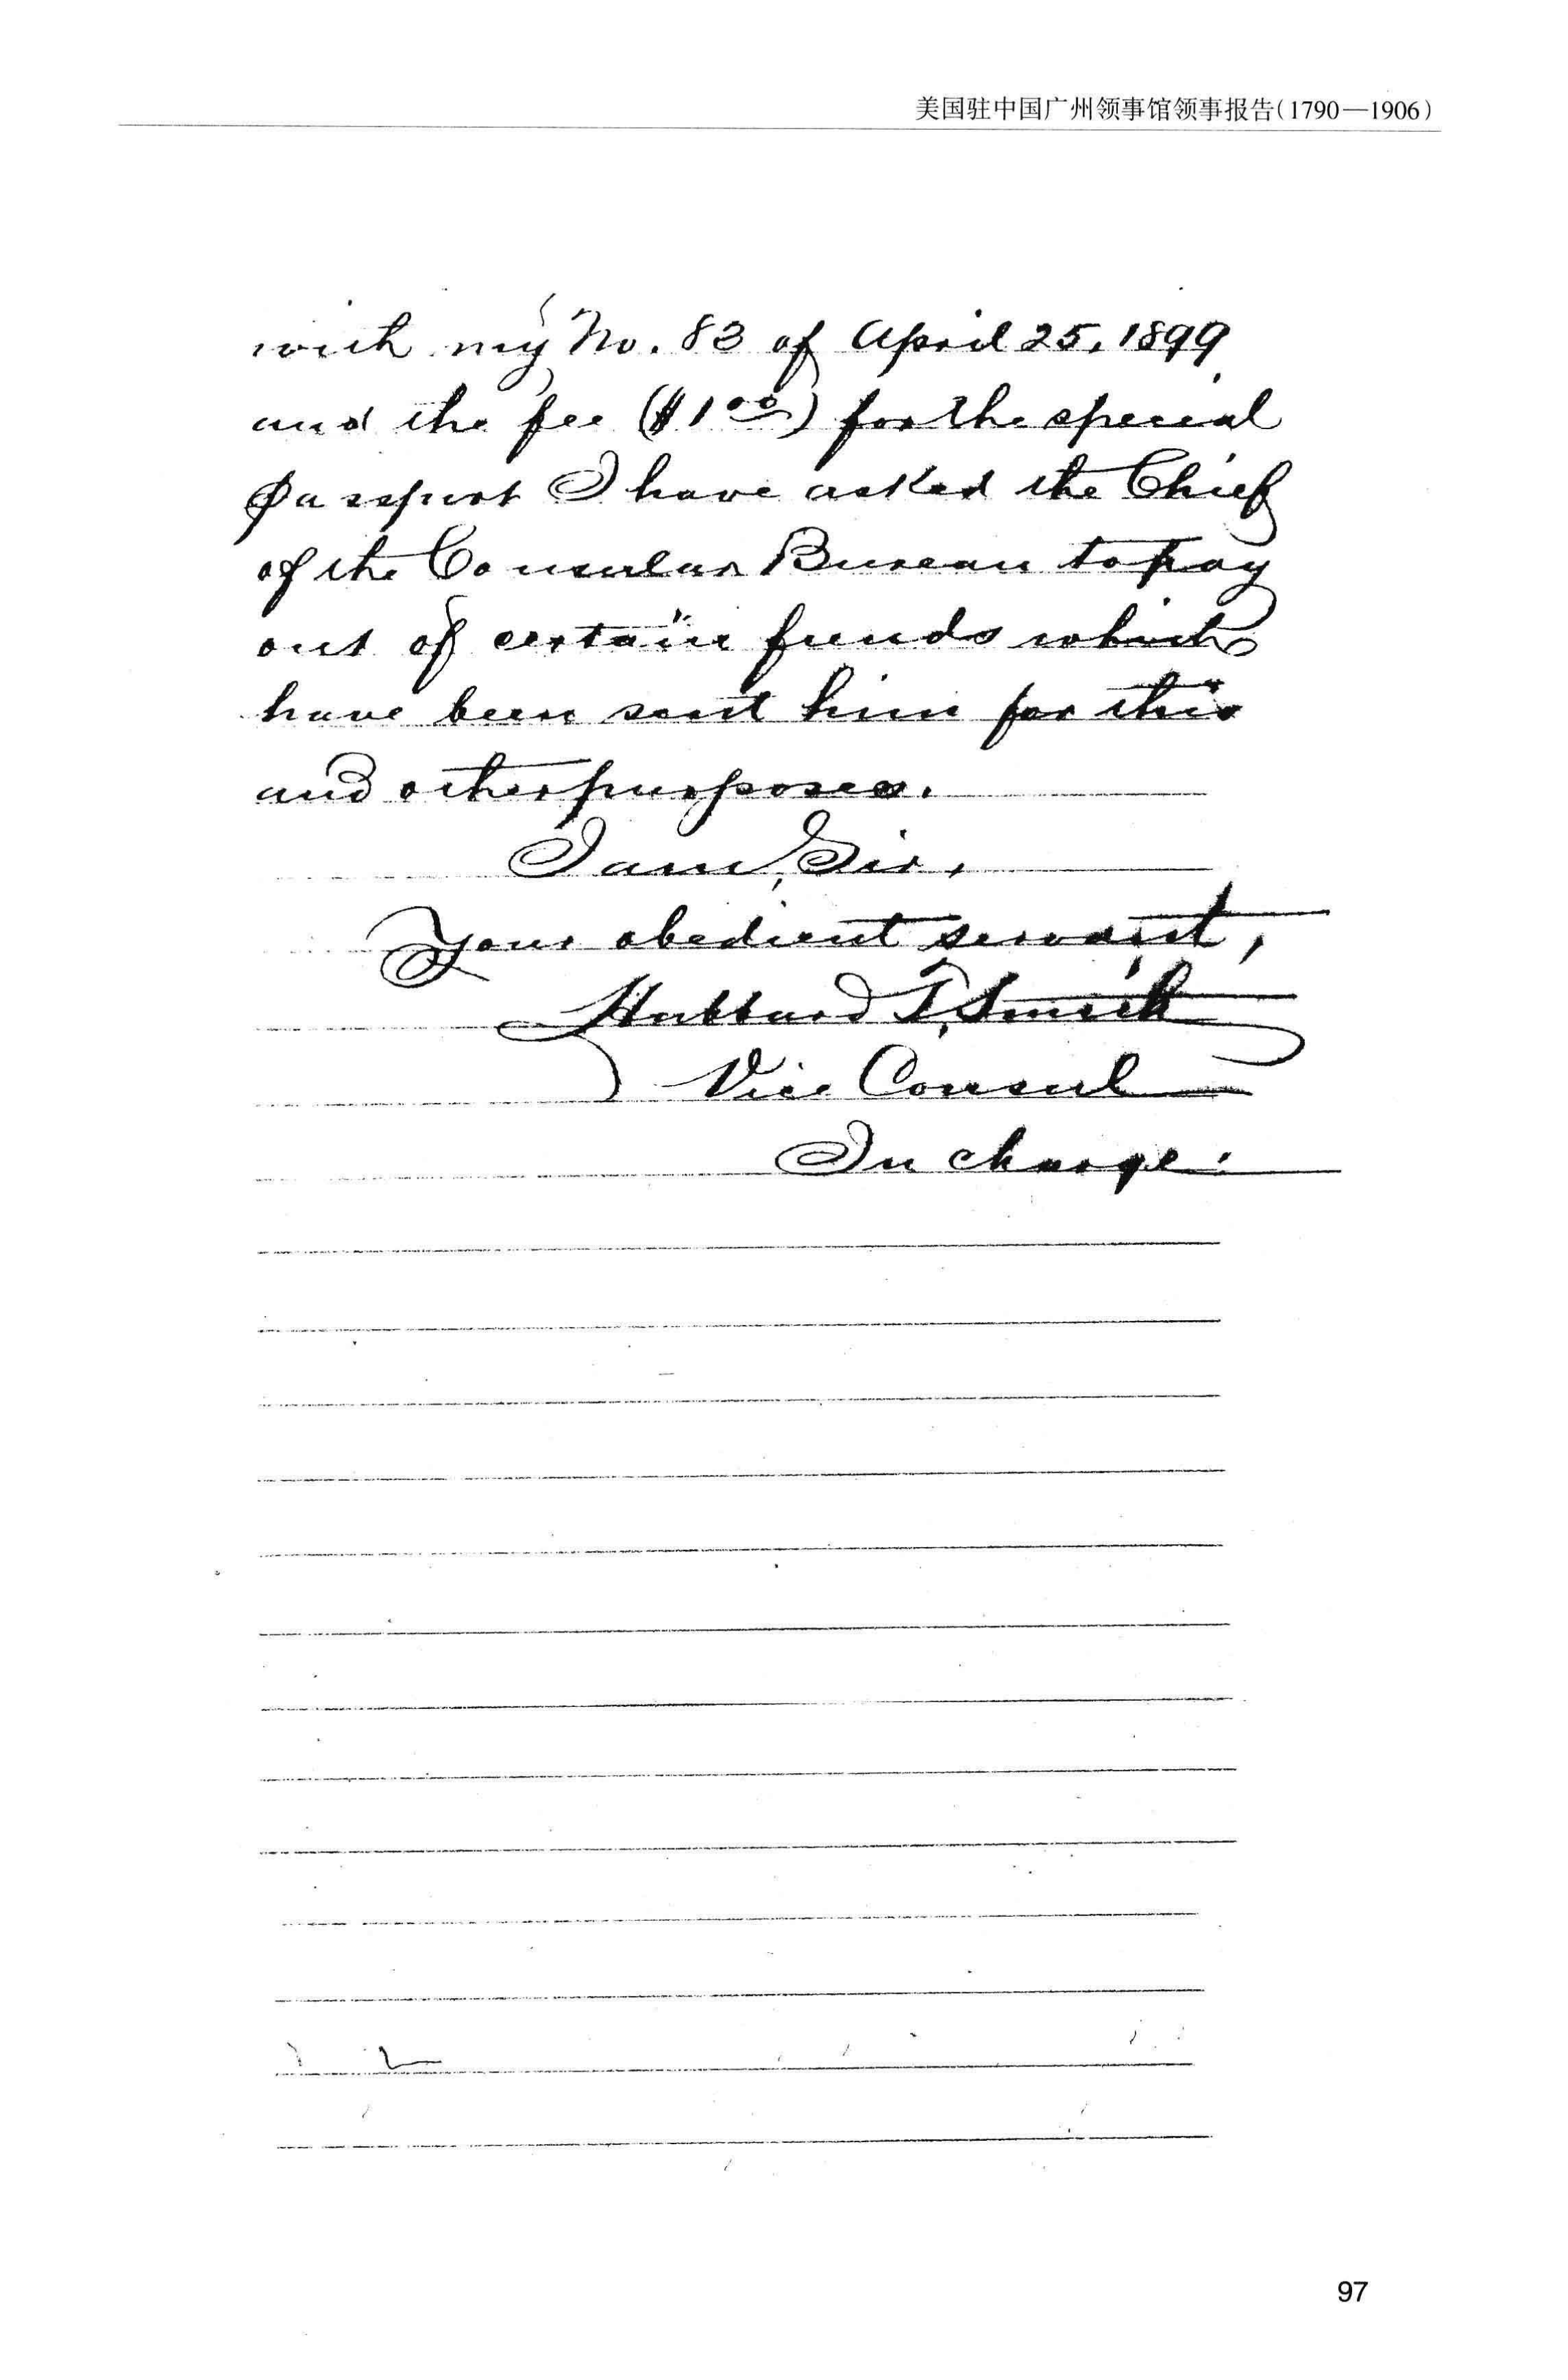 美国驻中国广州领事馆领事报告(1790—1906)
with my No. 83 of April 25, 1899
and the fee ($1.00) for the special
passport I have asked the Chief
of the Consular Bureau to pay
out of certain funds which
have been sent him for this
and other purposes.
I am, Sir,
Your obedient servant,
Hubbard T. Smith
Vice Consul
In charge.
97